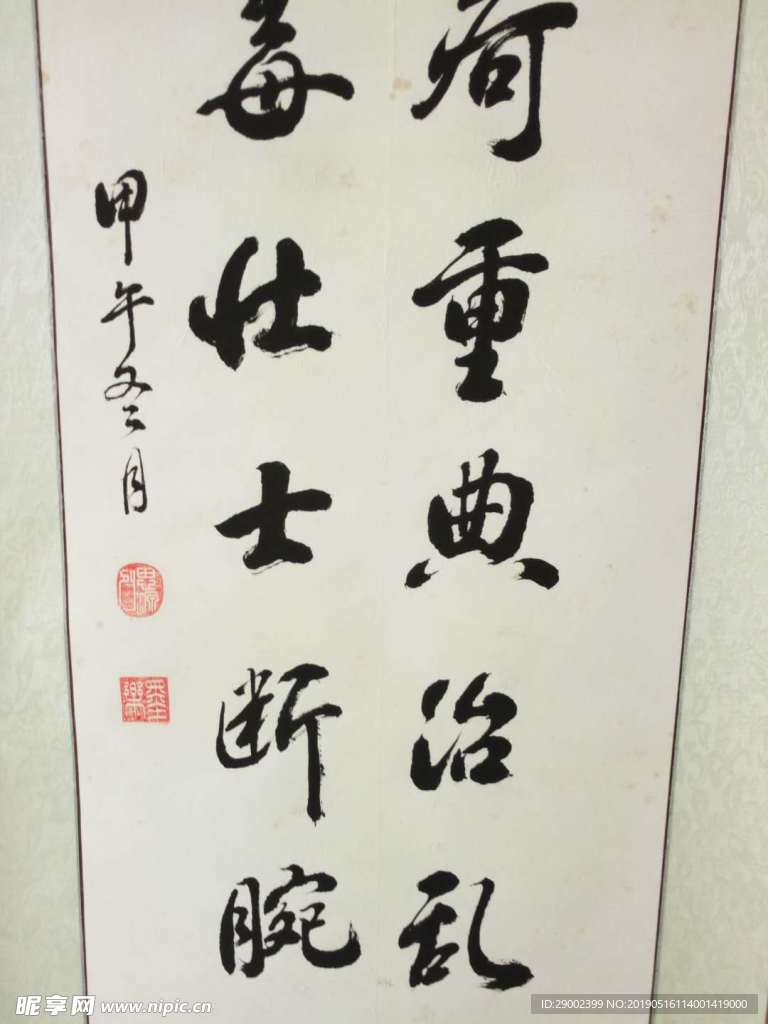 疴重典治乱
毒壮士断腕
甲午冬月
昵享网 www.nipic.cn
ID:29002399 NO:20190516114001419000